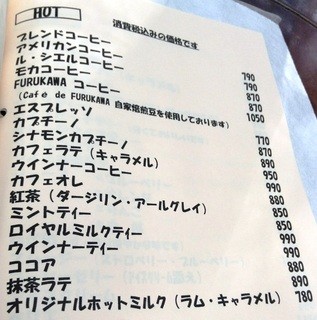 HOT
消費税込みの価格です
ブレンドコーヒー 790
アメリカンコーヒー 790
ル・シエルコーヒー 870
モカコーヒー 870
FURUKAWA コーヒー 1050
(Café de FURUKAWA 自家焙煎豆を使用しております)
エスプレッソ 770
カプチーノ 870
シナモンカプチーノ 890
カフェラテ（キャラメル） 950
ウインナーコーヒー 990
カフェオレ 880
紅茶（ダージリン・アールグレイ） 850
ミントティー 850
ロイヤルミルクティー 990
ウインナーティー 990
ココア 880
抹茶ラテ 890
オリジナルホットミルク（ラム・キャラメル） 780